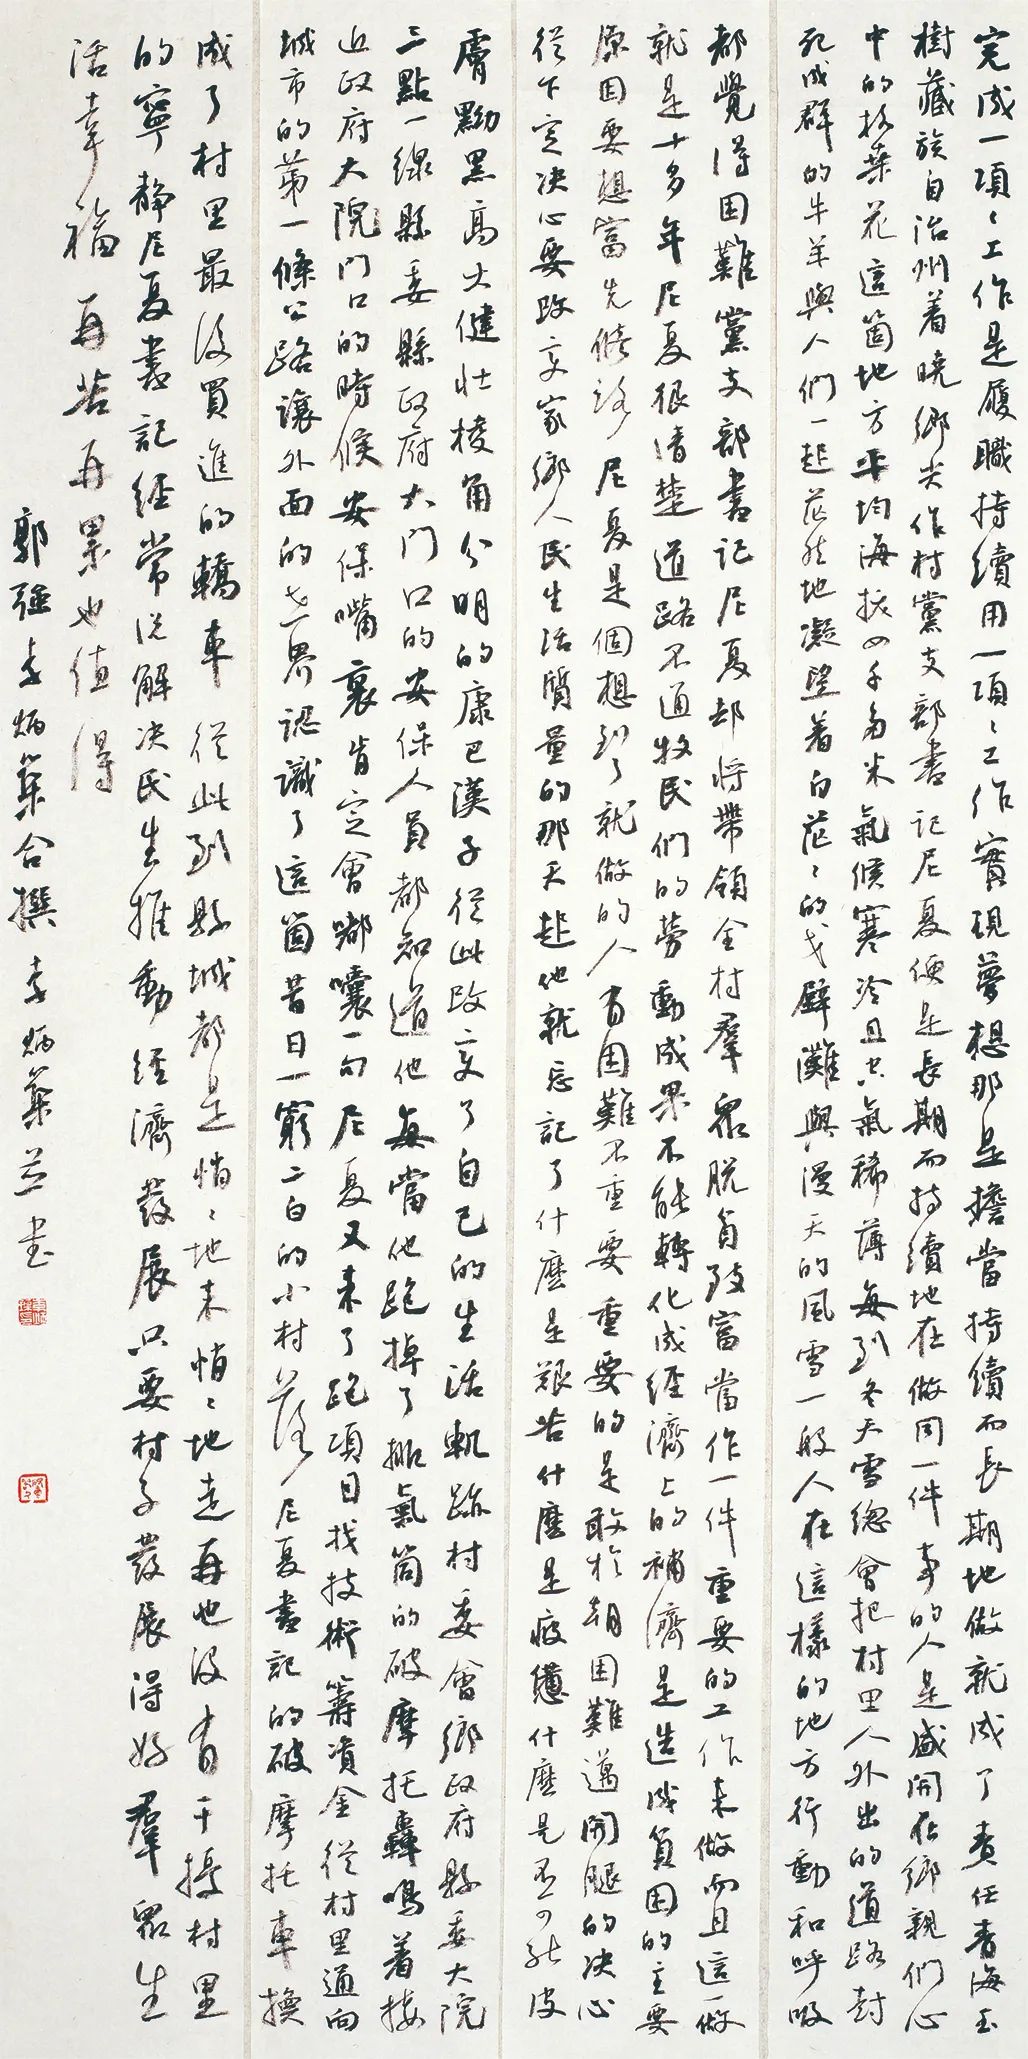 完成一項々工作是履職持續用一項々工作實現夢想那是擔當持續而長期地做就成了責任青海玉
樹藏族自治州着曉鄉尖作村黨支部書記尼夏便是長期而持續地在做同一件事的人是盛開在鄉親們心
中的格桑花這箇地方平均海拔四千多米氣候寒冷且空氣稀薄每到冬天雪總會把村里人外出的道路封
死成群的牛羊與人們一起茫然地凝望着白茫々的戈壁灘與漫天的風雪一般人在這樣的地方行動和呼吸
都覺得困難黨支部書記尼夏却將帶領全村羣衆脱貧致富當作一件重要的工作来做而且這一做
就是十多年尼夏很清楚道路不通牧民們的勞動成果不能轉化成經濟上的補濟是造成貧困的主要
原因要想富先修路尼夏是個想到了就做的人有困難不重要重要的是敢於朝困難邁開腿的决心
從下定决心要改变家鄉人民生活質量的那天起他就忘記了什麽是艱苦什麽是疲憊什麽是不可能皮
膚黝黑高大健壮棱角分明的康巴漢子從此改变了自己的生活軌跡村委會鄉政府縣委大院
三點一線縣委縣政府大門口的安保人員都知道他每當他跑掉了排氣筒的破摩托轟鳴着接
近政府大院門口的時候安保嘴裏肯定會嘟囔一句尼夏又来了跑項目找技術籌資金從村里通向
城市的第一條公路讓外面的世界認識了這箇昔日一窮二白的小村落尼夏書記的破摩托車換
成了村里最後買進的轎車從此到縣城都是悄々地来悄々地走再也没有干擾村里
的寧静尼夏書記經常说解决民生推動經濟發展只要村子發展得好羣衆生
活幸福再苦再累也值得
郭强李炳築合撰李炳築並书